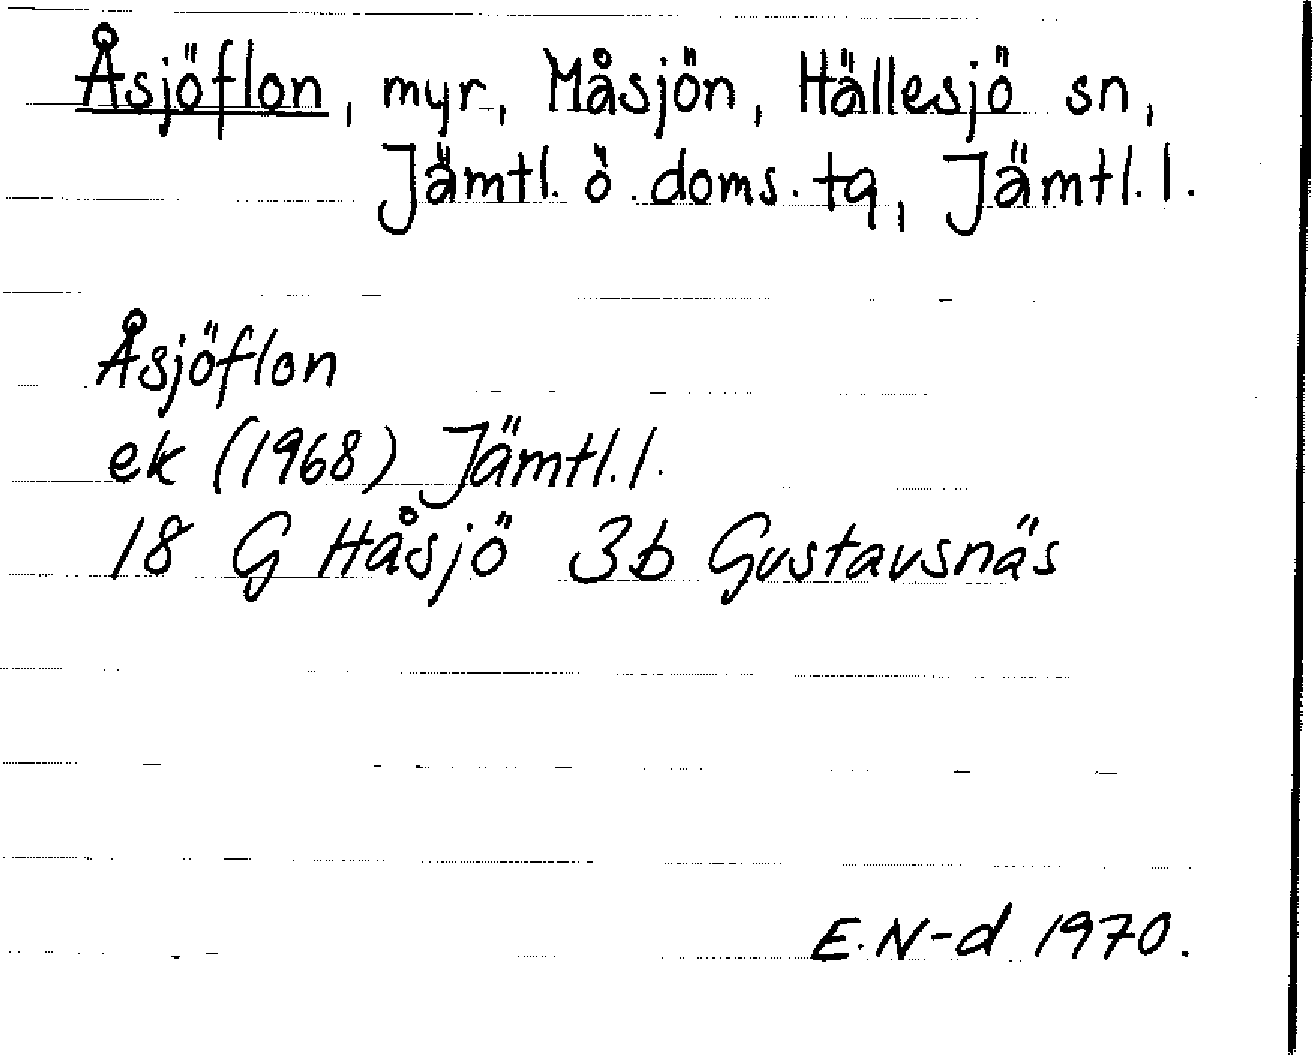 Åsjöflon, myr, Måsjön, Hällesjö sn,
Jämtl. ö. doms. tq, Jämtl. l.
Åsjöflon
ek (1968) Jämtl. l.
18 G Håsjö 3b Gustavsnäs
E. N-d 1970.